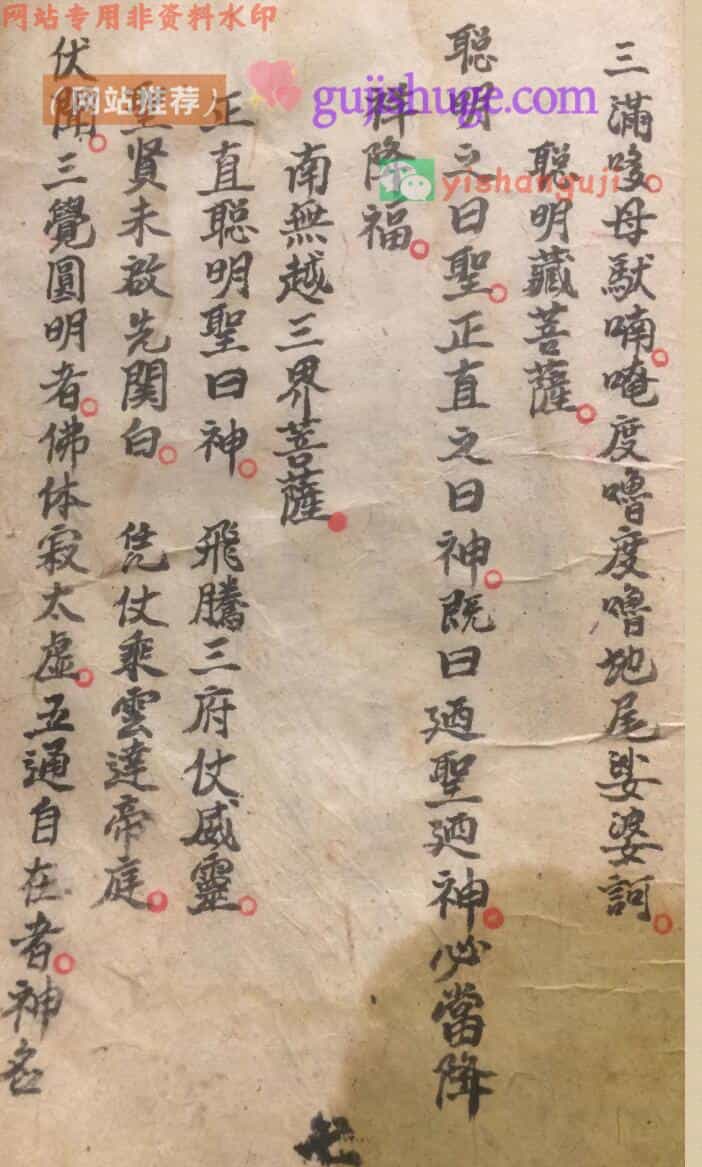 网站专用非资料水印
（网站推荐）
gujishuge.com
yishanguji
三滿哆母馱喃。唵度嚕度嚕地尾娑婆訶。
聰明藏菩薩。
聰明之曰聖。正直之曰神。既曰廼聖廼神。必當降
祥降福。
南無越三界菩薩。
正直聰明聖曰神。飛騰三府仗威靈。
聖賢未啟先関白。凭仗乘雲達帝庭。
伏聞。三覺圓明者。佛体寂太虛。五通自在者。神名
七